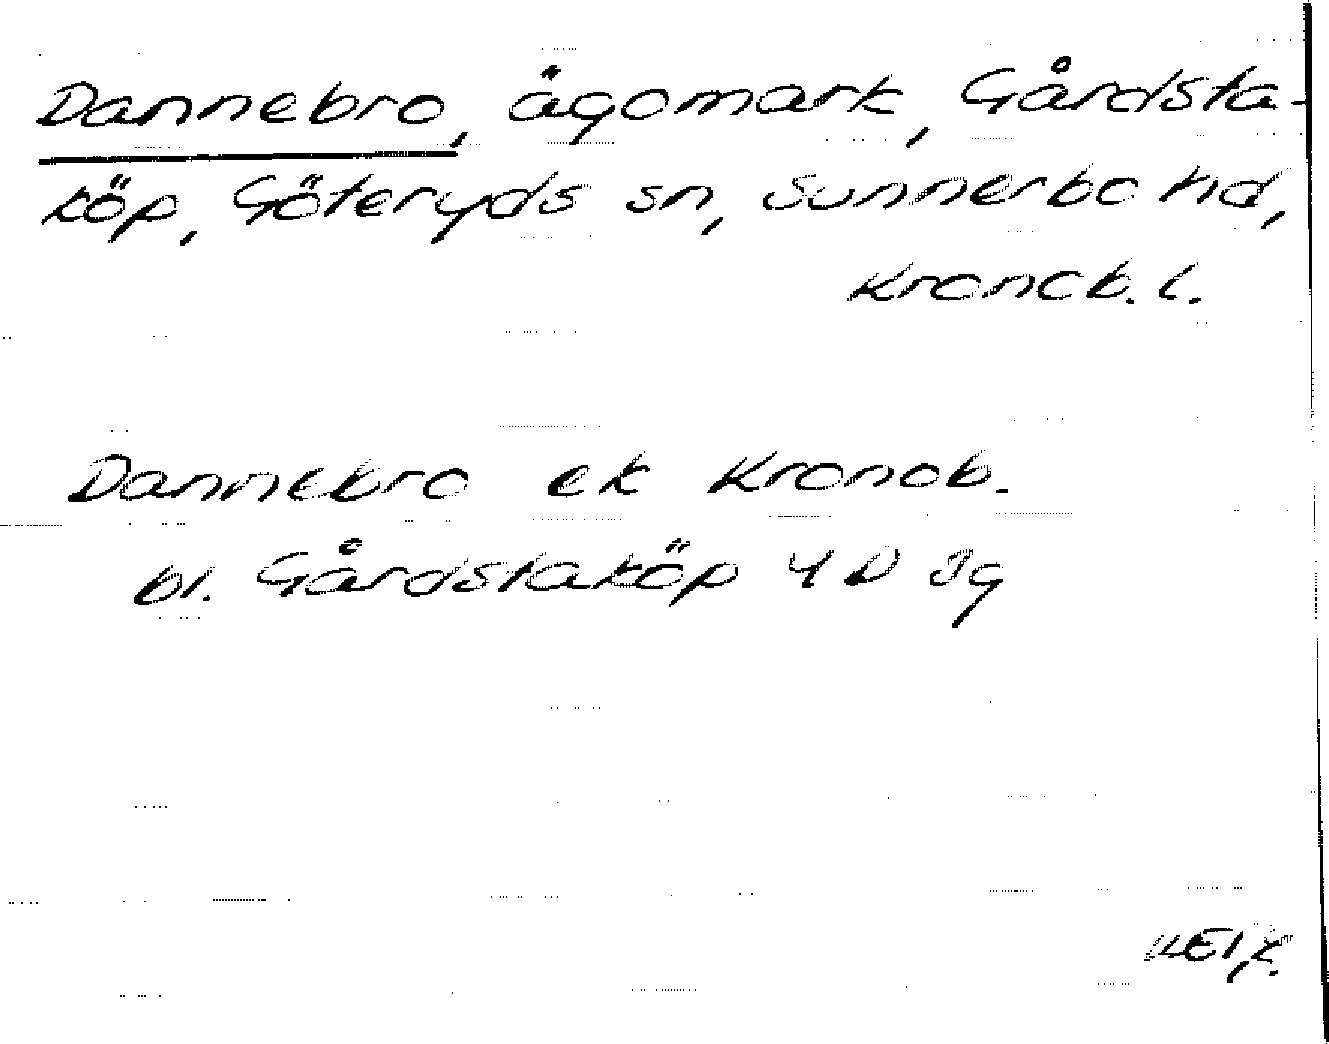 Dannebro, ägomark, Gårdsta-
köp, Göteryds sn, Sunnerbo hd,
Kronob. l.
Dannebro ek Kronob.
bl. Gårdstaköp 4D 3g